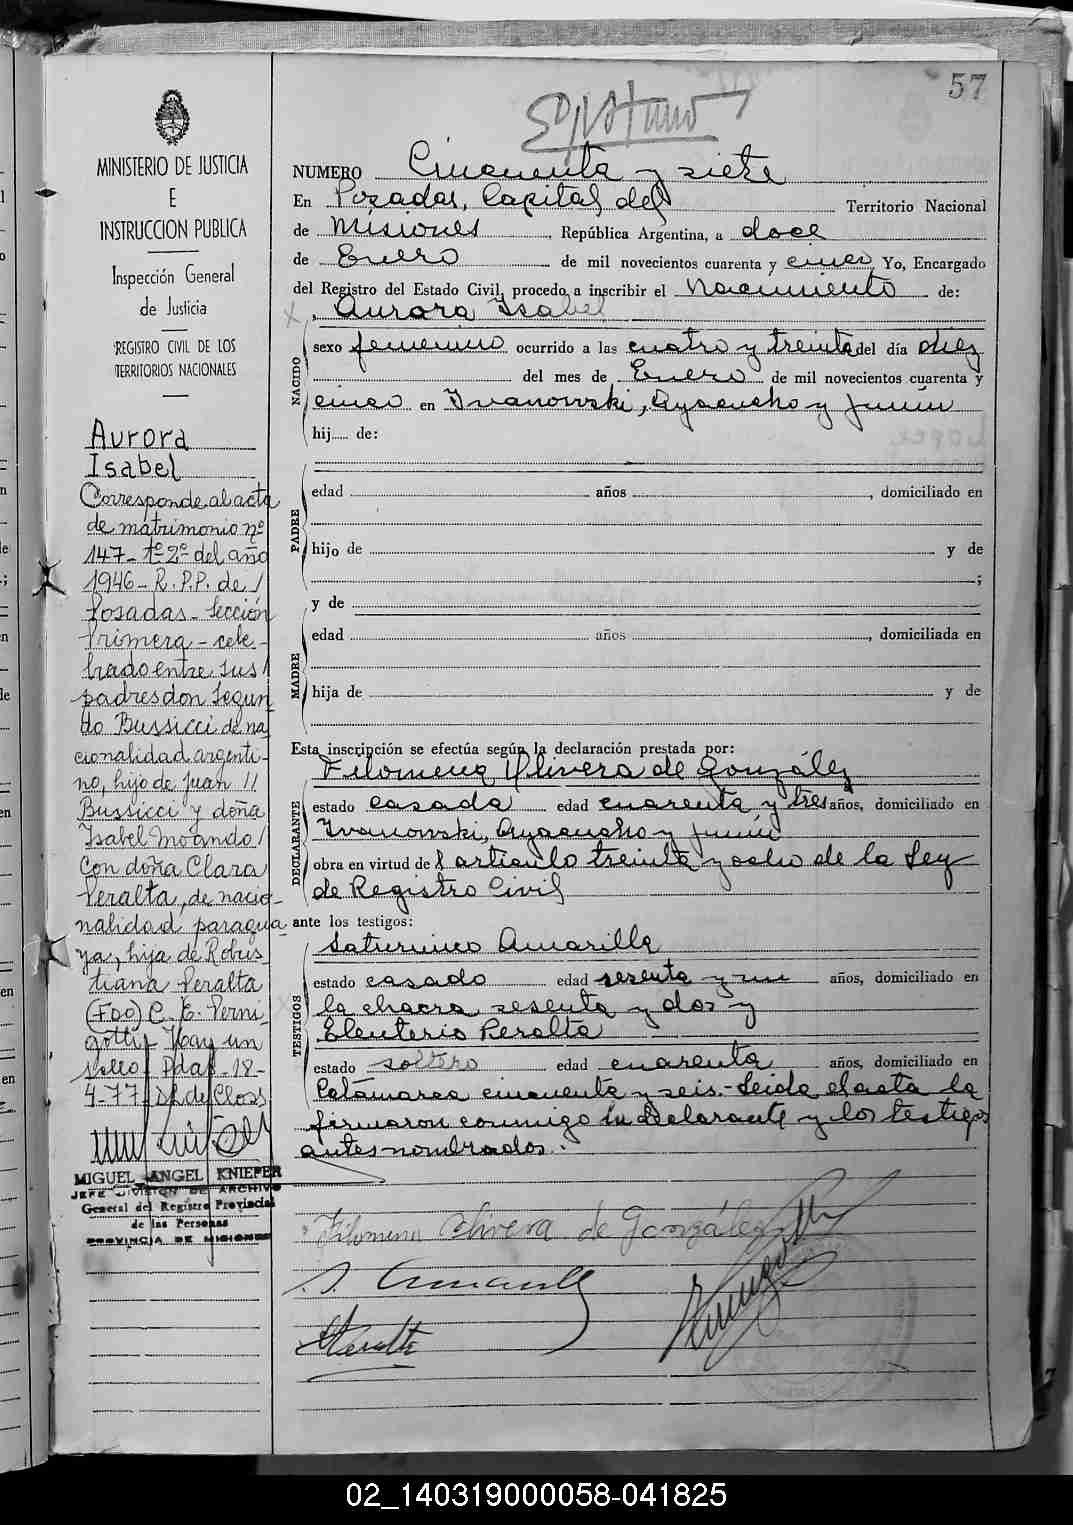 57
NUMERO Cincuenta y siete
En Posadas, Capital del Territorio Nacional
de Misiones, República Argentina, a doce
de Enero de mil novecientos cuarenta y cinco, Yo, Encargado
del Registro del Estado Civil, procedo a inscribir el Nacimiento de:
Aurora Isabel
NACIDO
sexo femenino ocurrido a las cuatro y treinta del día diez
del mes de Enero de mil novecientos cuarenta y
cinco en Ivanowski, Ayacucho y Junín
hij de:
PADRE
edad años , domiciliado en
hijo de y de
;
y de
MADRE
edad años , domiciliada en
hija de y de
Esta inscripción se efectúa según la declaración prestada por:
Filomena Olivera de González
DECLARANTE
estado casada edad cuarenta y tres años, domiciliado en
Ivanowski, Ayacucho y Junín
obra en virtud del artículo treinta y ocho de la Ley
de Registro Civil
ante los testigos:
TESTIGOS
Saturnino Amarilla
estado casado edad sesenta y un años, domiciliado en
la chacra sesenta y dos y
Eleuterio Peralta
estado soltero edad cuarenta años, domiciliado en
Catamarca cincuenta y seis.- Leida el acta la
firmaron conmigo la declarante y los testigos
antes nombrados.
Filomena Olivera de González
S. Amarilla
EPeralta
MINISTERIO DE JUSTICIA
E
INSTRUCCION PUBLICA
Inspección General
de Justicia
REGISTRO CIVIL DE LOS
TERRITORIOS NACIONALES
Aurora
Isabel
Corresponde al acta
de matrimonio nº
147- tº 2º del año
1946- R.P.P. de
Posadas- Sección
Primera- cele-
brado entre sus
padres don Segun
do Bussicci de na
cionalidad argenti-
no, hijo de Juan
Bussicci y doña
Isabel Moando
Con doña Clara
Peralta, de nacio-
nalidad paragua-
ya, hija de Robus
tiana Peralta
(FDO) C. E. Verni-
gotti- Hay un
sello- Pdas- 18-
4-77 de Closs
MIGUEL ANGEL KNIEPER
JEFE DIVISION DE ARCHIVO
General del Registro Provincial
de las Personas
PROVINCIA DE MISIONES
02_140319000058-041825